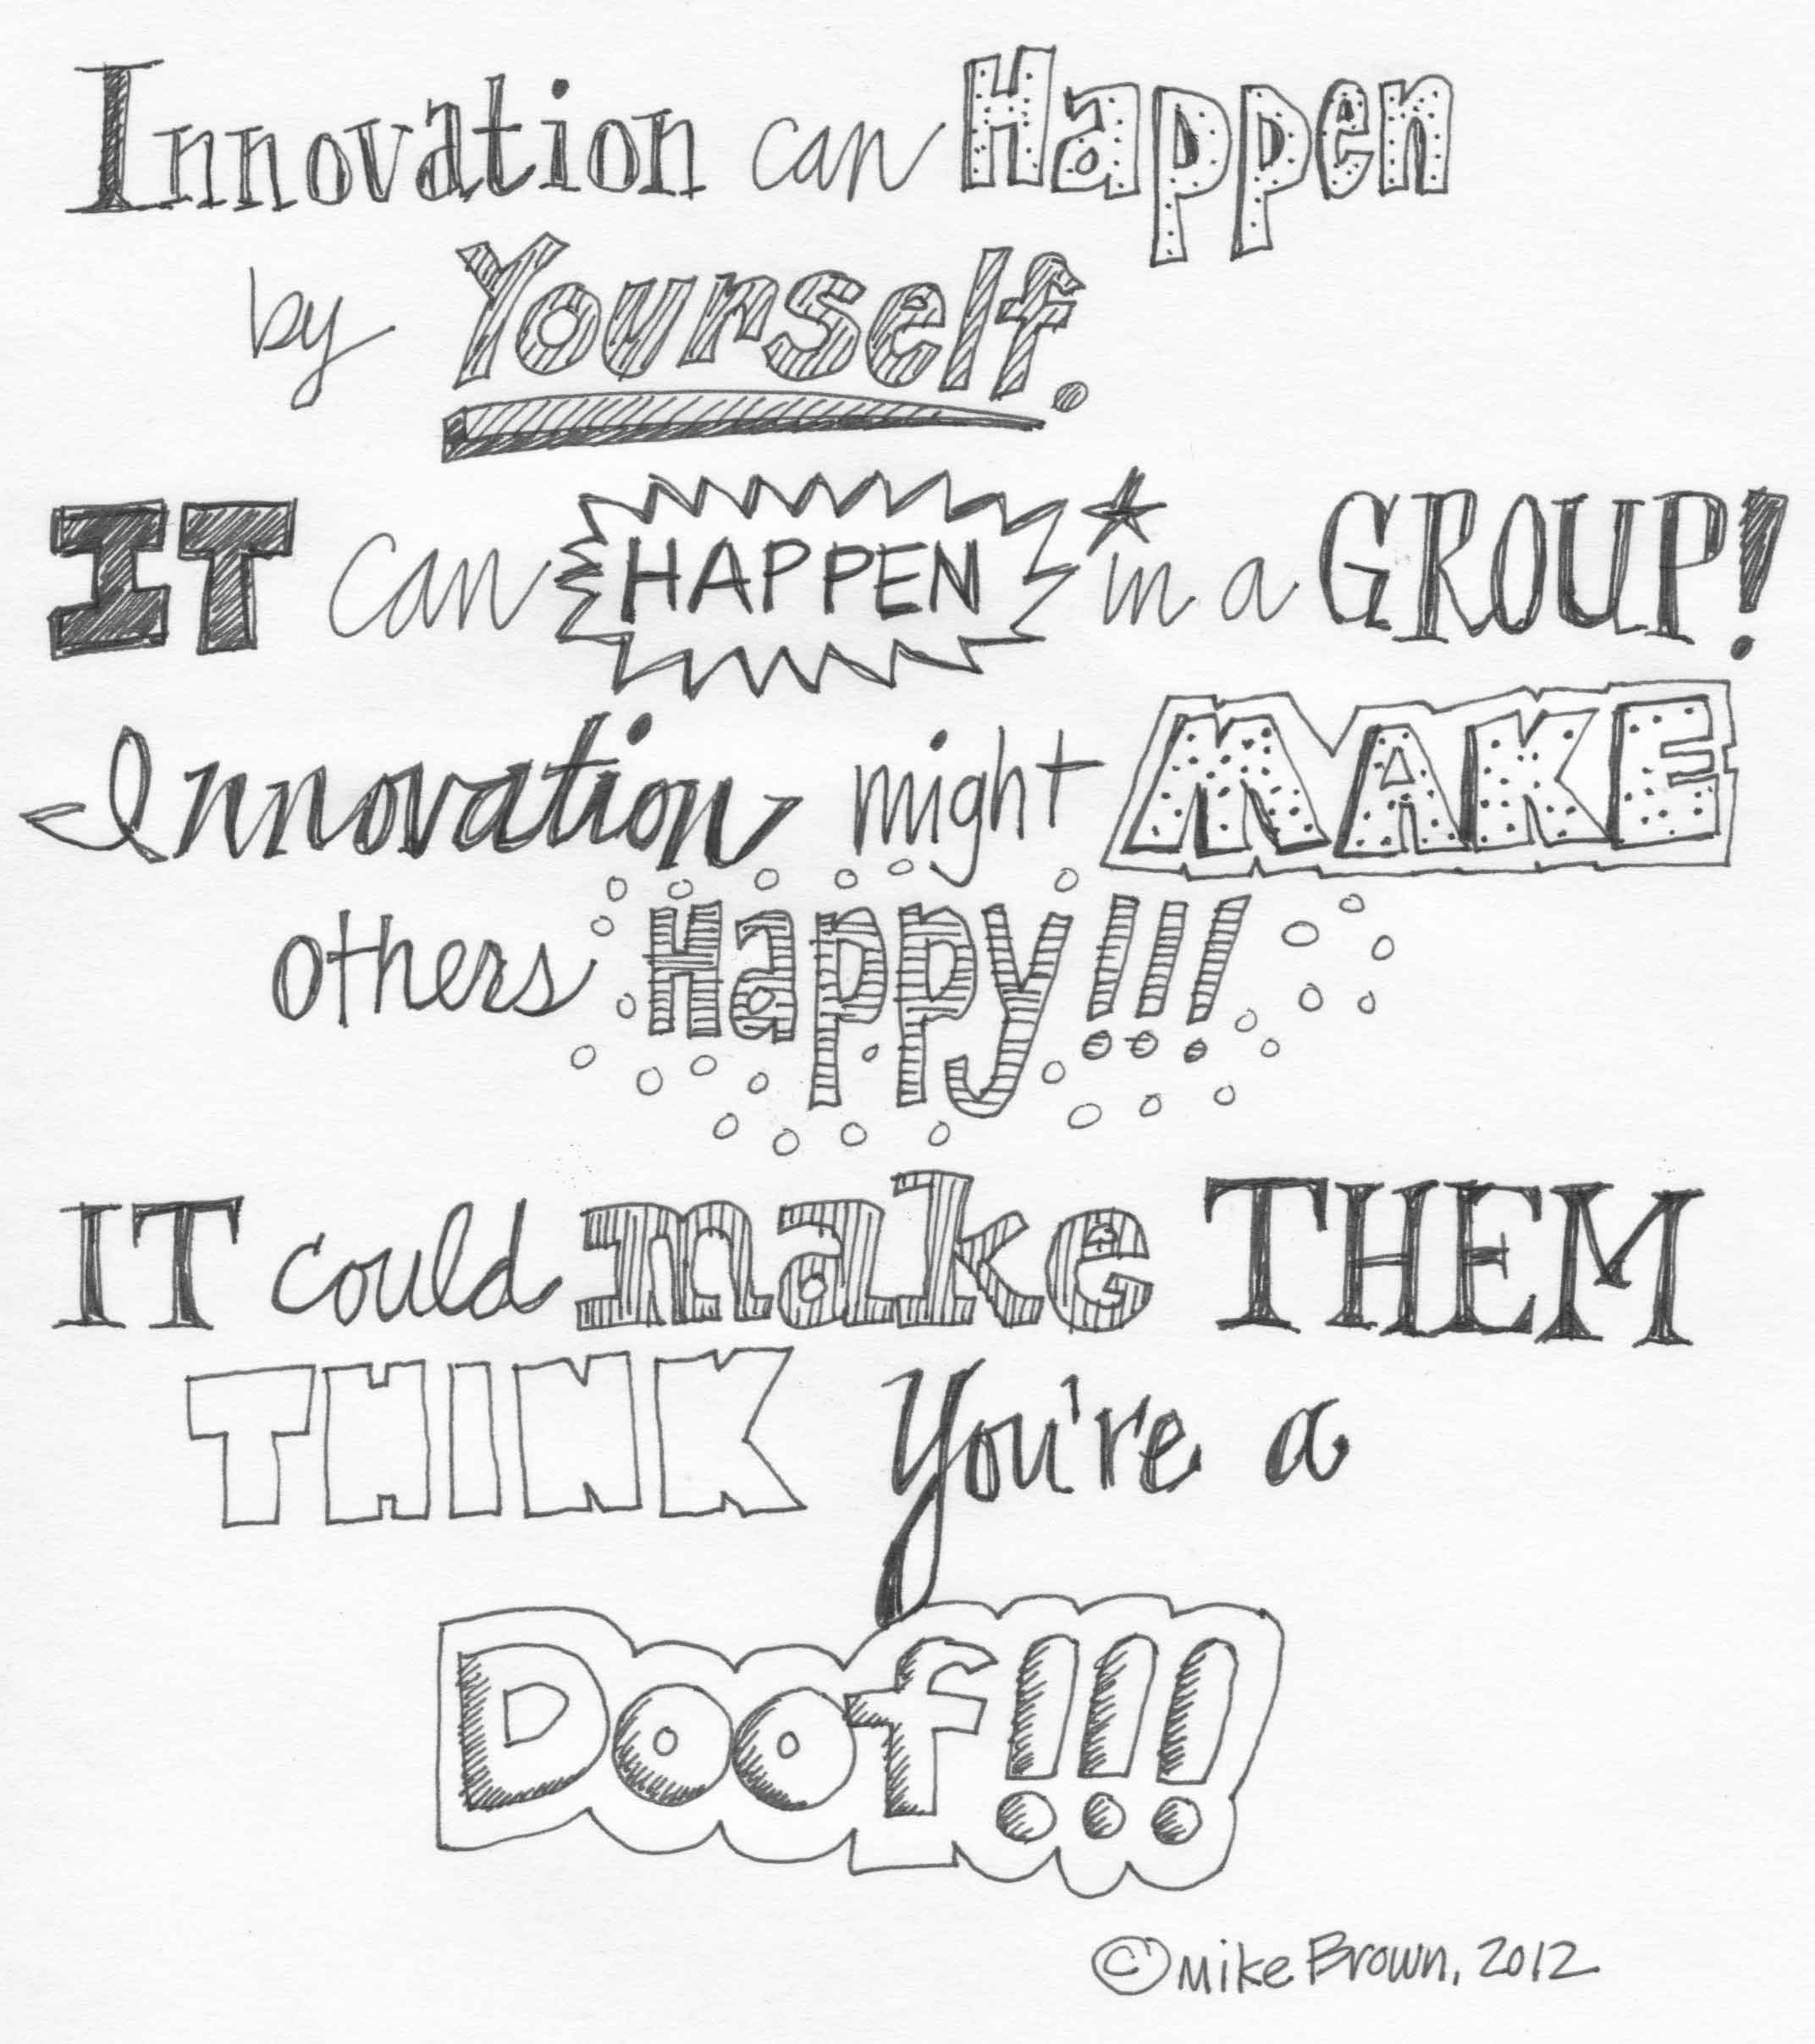 Innovation can Happen
by Yourself.
IT can HAPPEN in a GROUP!
Innovation might MAKE
others Happy!!!
IT could make THEM
THINK you're a
Doof!!!
©Mike Brown, 2012